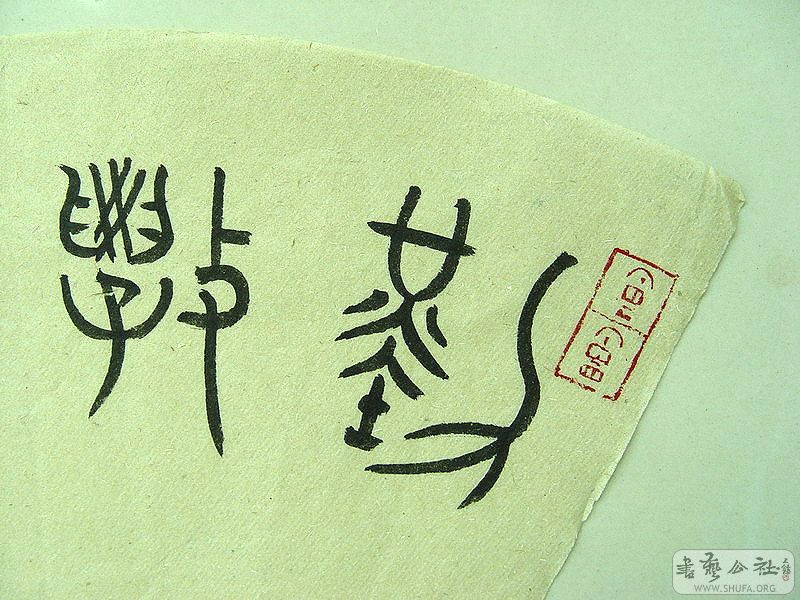 勤斅
書藝公社
WWW.SHUFA.ORG